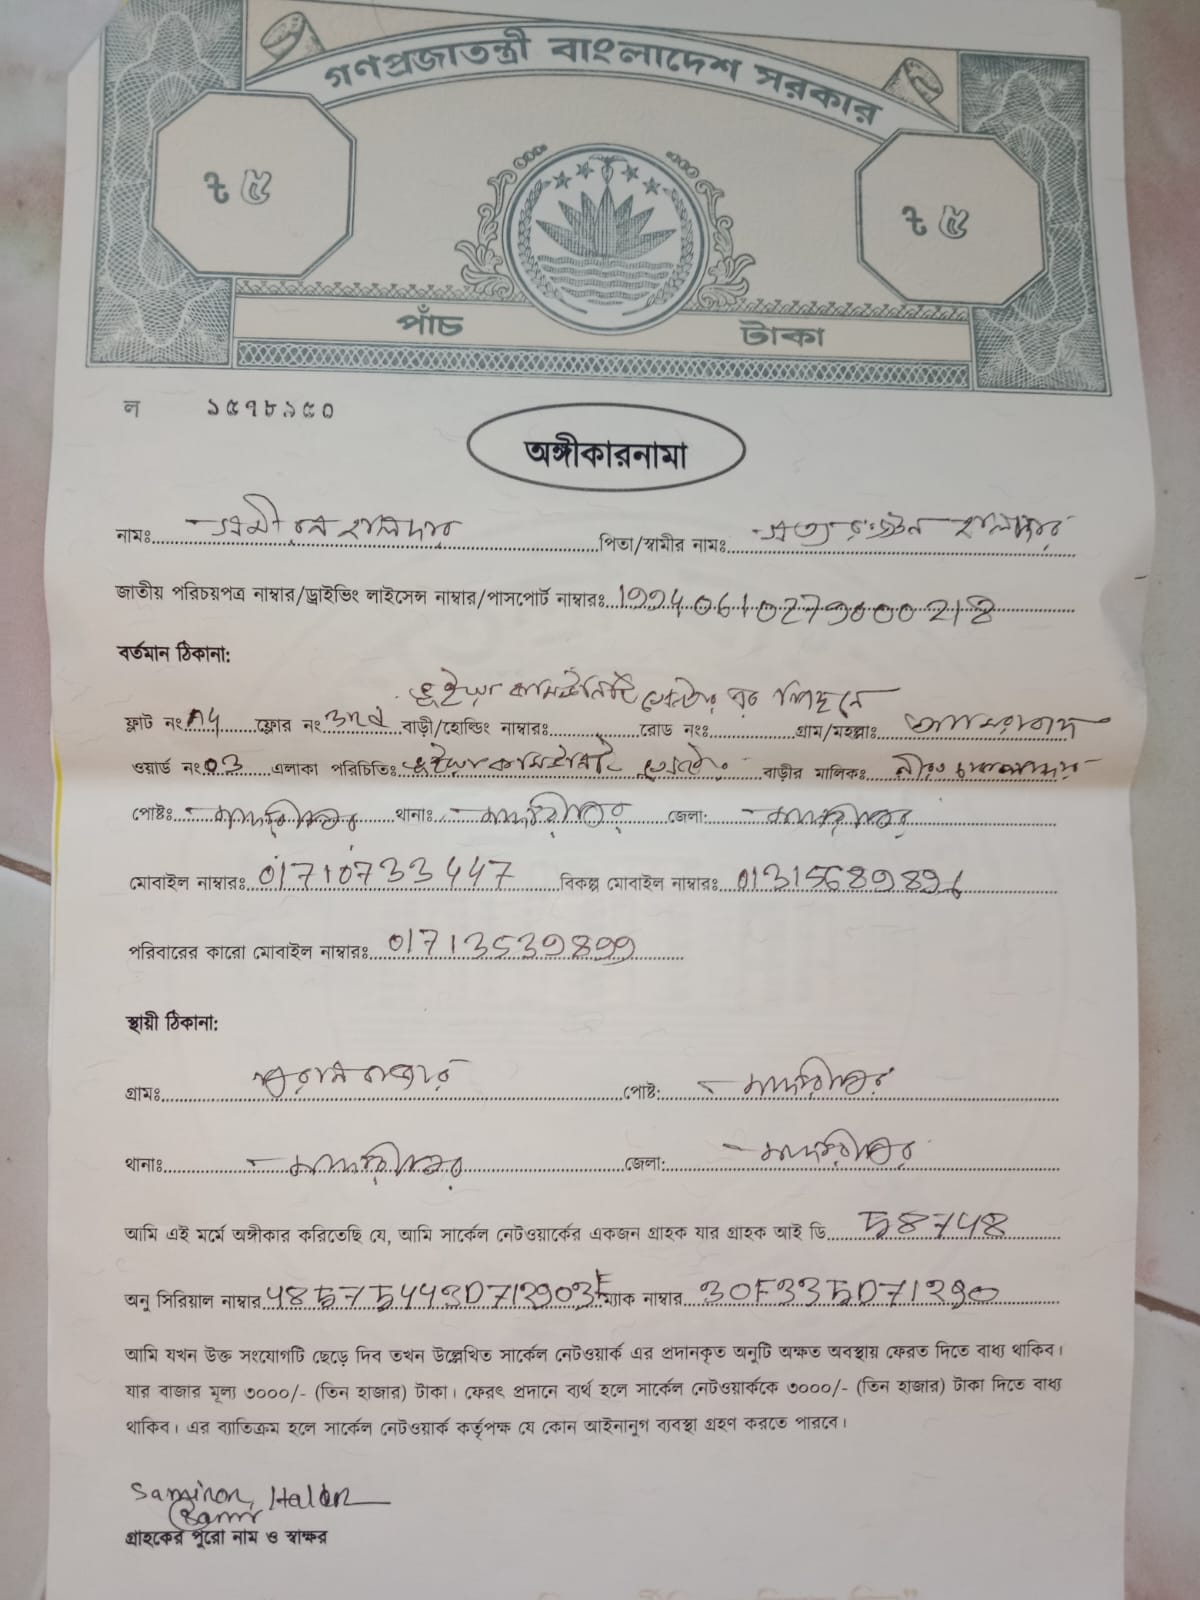 গণপ্রজাতন্ত্রী বাংলাদেশ সরকার
৳ ৫
৳ ৫
পাঁচ টাকা
ল ১৫৭৮১৫০
অঙ্গীকারনামা
নামঃ সমীরন হালদার পিতা/স্বামীর নামঃ সত্য রঞ্জন হালদার
জাতীয় পরিচয়পত্র নাম্বার/ড্রাইভিং লাইসেন্স নাম্বার/পাসপোর্ট নাম্বারঃ 19940610279000218
বর্তমান ঠিকানা:
ভূইয়া কমিউনিটি সেন্টার এর পিছনে
ফ্লাট নং A4 ফ্লোর নং 3rd বাড়ী/হোল্ডিং নাম্বারঃ রোড নংঃ গ্রাম/মহল্লাঃ
ওয়ার্ড নং 03 এলাকা পরিচিতিঃ ভূইয়া কমিউনিটি সেন্টার বাড়ীর মালিকঃ
পোষ্টঃ মাদারীপুর থানাঃ মাদারীপুর জেলা: মাদারীপুর
মোবাইল নাম্বারঃ 01710733447 বিকল্প মোবাইল নাম্বারঃ 01315689896
পরিবারের কারো মোবাইল নাম্বারঃ 01713539899
স্থায়ী ঠিকানা:
গ্রামঃ পুরানবাজার পোষ্ট: মাদারীপুর
থানাঃ মাদারীপুর জেলা: মাদারীপুর
আমি এই মর্মে অঙ্গীকার করিতেছি যে, আমি সার্কেল নেটওয়ার্কের একজন গ্রাহক যার গ্রাহক আই ডি 58748
অনু সিরিয়াল নাম্বার 485754430712903E ম্যাক নাম্বার 30F335D71290
আমি যখন উক্ত সংযোগটি ছেড়ে দিব তখন উল্লেখিত সার্কেল নেটওয়ার্ক এর প্রদানকৃত অনুটি অক্ষত অবস্থায় ফেরত দিতে বাধ্য থাকিব।
যার বাজার মূল্য ৩০০০/- (তিন হাজার) টাকা। ফেরৎ প্রদানে ব্যর্থ হলে সার্কেল নেটওয়ার্ককে ৩০০০/- (তিন হাজার) টাকা দিতে বাধ্য
থাকিব। এর ব্যাতিক্রম হলে সার্কেল নেটওয়ার্ক কর্তৃপক্ষ যে কোন আইনানুগ ব্যবস্থা গ্রহণ করতে পারবে।
Samiron Halder
গ্রাহকের পুরো নাম ও স্বাক্ষর